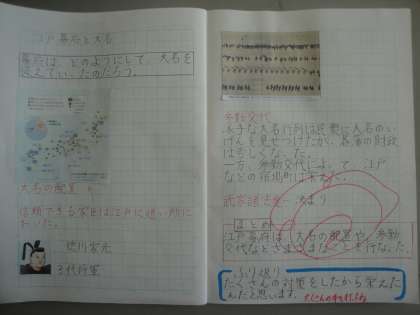 江戸幕府と大名
幕府は、どのようにして、大名を
従えていったのだろう。
大名の配置
信頼できる家臣は江戸に近い所に
おいた。
徳川家光
3代将軍
参勤交代
大きな大名行列は民衆に大名の
いげんを見せつけたが、各藩の財政
は苦しくなった。
一方、参勤交代によって、江戸
などの宿場町は栄えた。
武家諸法度… 決まり
まとめ
江戸幕府は、大名の配置や、参勤
交代などさまざまなことを行なった。
ふり返り
たくさんの対策をしたから栄えた
んだと思います。